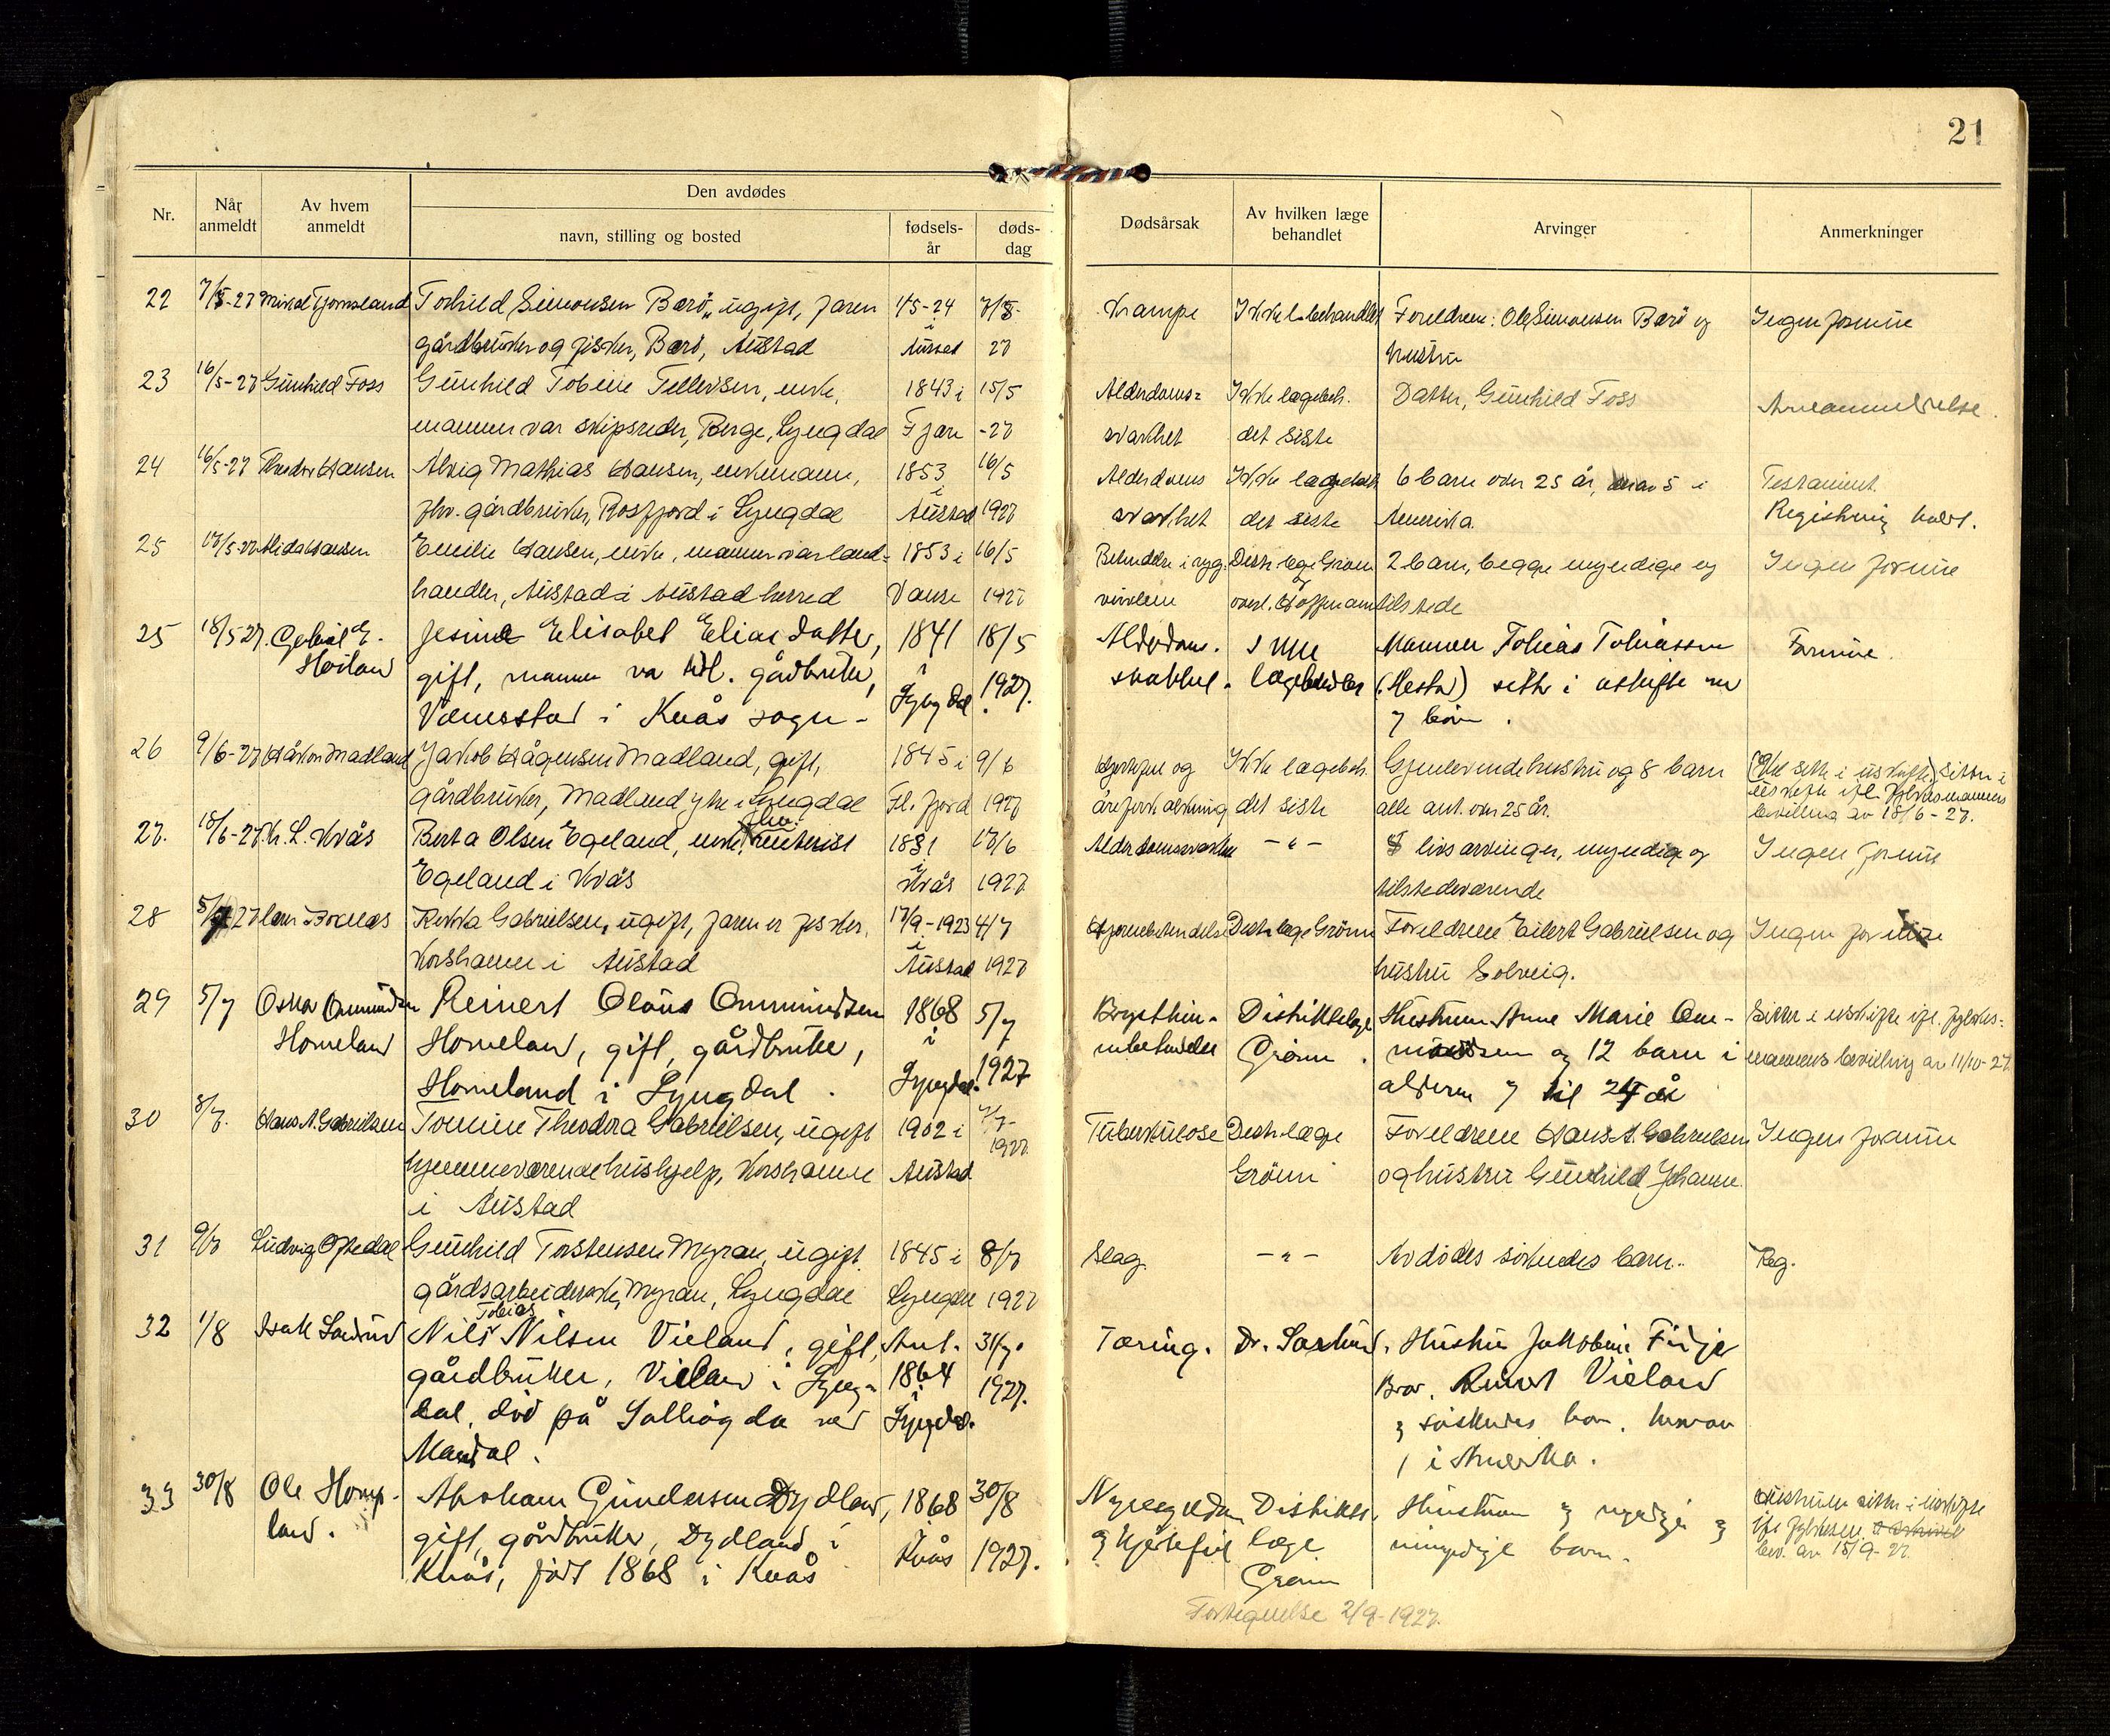 21
Nr.
Når anmeldt
Av hvem anmeldt
Den avdødes
navn, stilling og bosted
fødsels-år
døds-dag
Dødsårsak
Av hvilken læge behandlet
Arvinger
Anmerkninger
22 7/5-27 Torhild Simonsen Barö, ugift, faren 1/5-24 7/5- Krampe Ikke l.behandlet Foreldrene: Ole Simonsen Barö og Ingen formue
gårdbruker og fisker, Barö, Austad i Austad 27 hustru
23 16/5-27 Gunhild Foss Gunhild Tobine Tellevsen, enke, 1843 i 15/5 Alderdoms- Ikke lægebeh. Datter, Gunhild Foss Arveanmeldelse.
mannen var skipsreder, Berge, Lyngdal Fjære -27 svakhet det siste
24 16/5-27 Theodor Hansen Mathias Hansen, enkemann, 1853 16/5 Alderdoms Ikke lægebeh. 6 barn over 25 år, derav 5 i Testament.
fhv. gårdbruker, Rosfjord i Lyngdal i Austad 1927 svakhet det siste Amerika. Registrering holdt.
25 17/5-27 Alida Hansen Emilie Hansen, enke, mannen var land- 1853 i 16/5 i ryg- Distr.læge Grönn 2 barn, begge myndige og Ingen formue
handler, Austad i Austad herred Vanse 1927 og overl. Hoffmann tilstede
25 18/5 27. Jesine Elisabet Eliasdatter, 1841 18/5 Alderdoms- Ikke Mannen Tobias Tobiassen Formue.
Høiland gift, mannen va gårdbruker, i svakhet. sitte i uskifte
Vemestad i Kvås sogn - Lyngdal 1927. 7 barn.
26 9/6-27 Håkon Madland Jakob Hågensen Madland, gift, 1845 i 9/6 Hjertefeil og Ikke lægebeh. Gjenlevende hustru og 8 barn (Vil sitte i uskifte) Sitter i
gårdbruker, Madland ytre i Lyngdal Fl.fjord 1927 åreforkalkning det siste alle ant. over 25 år. uskifte ifl. fylkesmannens
bevilling av 18/6-27.
27. 18/6-27. L. Kvås Berta Olsen Egeland, enke, fhv. 1831 17/6 Alderdomssvakhet -"- 8 livsarvinger, myndige og Ingen formue
Egeland i Kvås i Kvås 1927 tilstedeværende
28 5/7 27 Rekka Gabrielsen, ugift, faren er fisker, 17/9-1923 4/7 Hjernebetendelse Distr.læge Grönn Foreldrene Eilert Gabrielsen og Ingen formue
Korshamn i Austad i Austad 1927 hustru Solveig.
29 5/7 Oskar Ommundsen Reinert Olaus Ommundsen 1868 5/7 Brysthin- Distriktslæge Hustruen Anne Marie Om- Sitter i uskifte ifl. fylkes-
Homeland Homeland, gift, gårdbruker, i nebetendelse Grønn. mundsen og 12 barn i mannens bevilling av 11/10-27.
Homeland i Lyngdal. Lyngdal. 1927 alderen 7 til 27 år
30 8/7. Hans A. Gabrielsen Tomine Theodora Gabrielsen, ugift 1902 i 7/7- Tuberkulose Distr.læge Foreldrene Hans A. Gabrielsen Ingen formue
hjemmeværende hushjelp, Korshamn Austad 1927 Grönn og hustru Gunhild Johanne.
i Austad
31 9/7 Ludvig Oftedal Gunhild Torstensen Myran, ugift 1845 i 8/7 Slag. -"- Avdödes söskendes barn. Reg.
gårdsarbeiderske, Myran, Lyngdal Lyngdal 1927
32 1/8 Nils Tobias Nilsen Vieland, gift, Ant. 31/7. Tæring. Dr. Hustru Jakobine Fidje
gårdbruker, Vieland i Lyng- 1864 1927. Bror. Reinert Vieland
dal, död på ved i Lyngdal. og söskendes barn. hvorav
Mandal. 1 i Amerika.
33 30/8 Ole Homp- Abraham Gundersen Dydland, 1868 30/8 Nyresygdom Distrikts- Hustruen og myndige og Hustruen sitter i uskifte
land. gift, gårdbruker, Dydland i i og hjertefeil læge umyndige barn.
Kvås, født 1868 i Kvås Kvås 1927. Grønn bev. av 15/9-27.
Fortegnelse 2/9-1927.